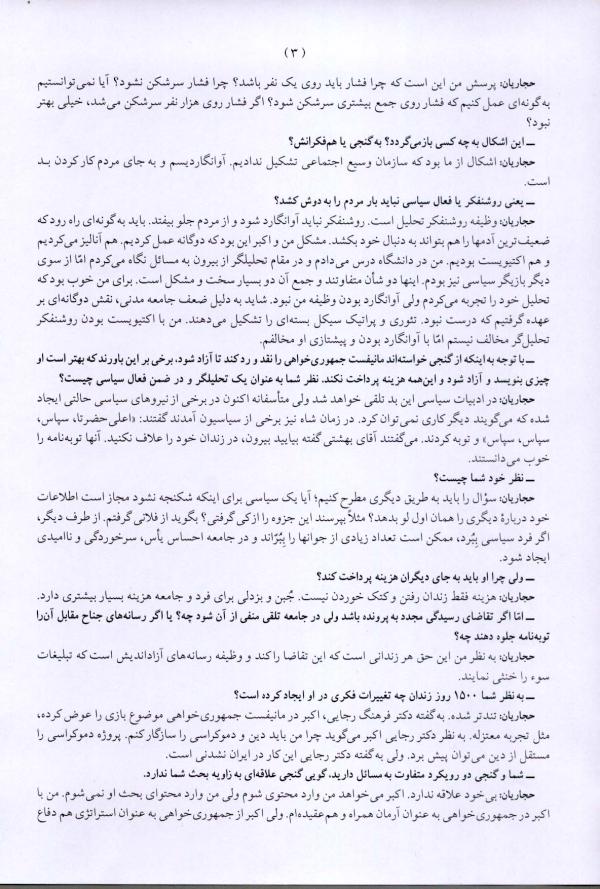 (۳)
حجاریان: پرسش من این است که چرا فشار باید روی یک نفر باشد؟ چرا فشار سرشکن نشود؟ آیا نمی‌توانستیم
به‌گونه‌ای عمل کنیم که فشار روی جمع بیشتری سرشکن شود؟ اگر فشار روی هزار نفر سرشکن می‌شد، خیلی بهتر
نبود؟
ــ این اشکال به چه کسی بازمی‌گردد؟ به گنجی یا هم‌فکرانش؟
حجاریان: اشکال از ما بود که سازمان وسیع اجتماعی تشکیل ندادیم. آوانگاردیسم و به جای مردم کار کردن بد
است.
ــ یعنی روشنفکر یا فعال سیاسی نباید بار مردم را به دوش کشد؟
حجاریان: وظیفه روشنفکر تحلیل است. روشنفکر نباید آوانگارد شود و از مردم جلو بیفتد. باید به‌گونه‌ای راه رود که
ضعیف‌ترین آدمها را هم بتواند به دنبال خود بکشد. مشکل من و اکبر این بود که دوگانه عمل کردیم. هم آنالیز می‌کردیم
و هم اکتیویست بودیم. من در دانشگاه درس می‌دادم و در مقام تحلیلگر از بیرون به مسائل نگاه می‌کردم امّا از سوی
دیگر بازیگر سیاسی نیز بودم. اینها دو شأن متفاوتند و جمع آن دو بسیار سخت و مشکل است. برای من خوب بود که
تحلیل خود را تجربه می‌کردم ولی آوانگارد بودن وظیفه من نبود. شاید به دلیل ضعف جامعه مدنی، نقش دوگانه‌ای بر
عهده گرفتیم که درست نبود. تئوری و پراتیک سیکل بسته‌ای را تشکیل می‌دهند. من با اکتیویست بودن روشنفکر
تحلیل‌گر مخالف نیستم امّا با آوانگارد بودن و پیشتازی او مخالفم.
ــ با توجه به اینکه از گنجی خواسته‌اند مانیفست جمهوری‌خواهی را نقد و رد کند تا آزاد شود، برخی بر این باورند که بهتر است او
چیزی بنویسد و آزاد شود و این‌همه هزینه پرداخت نکند. نظر شما به عنوان یک تحلیلگر و در ضمن فعال سیاسی چیست؟
حجاریان: در ادبیات سیاسی این بد تلقی خواهد شد ولی متأسفانه اکنون در برخی از نیروهای سیاسی حالتی ایجاد
شده که می‌گویند دیگر کاری نمی‌توان کرد. در زمان شاه نیز برخی از سیاسیون آمدند گفتند: «اعلی‌حضرتا، سپاس،
سپاس، سپاس» و توبه کردند. می‌گفتند آقای بهشتی گفته بیایید بیرون، در زندان خود را علاف نکنید. آنها توبه‌نامه را
خوب می‌دانستند.
ــ نظر خود شما چیست؟
حجاریان: سؤال را باید به طریق دیگری مطرح کنیم؛ آیا یک سیاسی برای اینکه شکنجه نشود مجاز است اطلاعات
خود دربارهٔ دیگری را همان اول لو بدهد؟ مثلاً بپرسند این جزوه را از کی گرفتی؟ بگوید از فلانی گرفتم. از طرف دیگر،
اگر فرد سیاسی بِبُرد، ممکن است تعداد زیادی از جوانها را بِبُرّاند و در جامعه احساس یأس، سرخوردگی و ناامیدی
ایجاد شود.
ــ ولی چرا او باید به جای دیگران هزینه پرداخت کند؟
حجاریان: هزینه فقط زندان رفتن و کتک خوردن نیست. جُبن و بزدلی برای فرد و جامعه هزینه بسیار بیشتری دارد.
ــ امّا اگر تقاضای رسیدگی مجدد به پرونده باشد ولی در جامعه تلقی منفی از آن شود چه؟ یا اگر رسانه‌های جناح مقابل آن را
توبه‌نامه جلوه دهند چه؟
حجاریان: به نظر من این حق هر زندانی است که این تقاضا را کند و وظیفه رسانه‌های آزاداندیش است که تبلیغات
سوء را خنثی نمایند.
ــ به نظر شما ۱۵۰۰ روز زندان چه تغییرات فکری در او ایجاد کرده است؟
حجاریان: تندتر شده. به گفته دکتر فرهنگ رجایی، اکبر در مانیفست جمهوری‌خواهی موضوع بازی را عوض کرده،
مثل تجربه معتزله. به نظر دکتر رجایی اکبر می‌گوید چرا من باید دین و دموکراسی را سازگار کنم. پروژه دموکراسی را
مستقل از دین می‌توان پیش برد. ولی به گفته دکتر رجایی این کار در ایران نشدنی است.
ــ شما و گنجی دو رویکرد متفاوت به مسائل دارید، گویی گنجی علاقه‌ای به زاویه بحث شما ندارد.
حجاریان: بی‌خود علاقه ندارد. اکبر می‌خواهد من وارد محتوی شوم ولی من وارد محتوای بحث او نمی‌شوم. من با
اکبر در جمهوری‌خواهی به عنوان آرمان همراه و هم‌عقیده‌ام. ولی اکبر از جمهوری‌خواهی به عنوان استراتژی هم دفاع